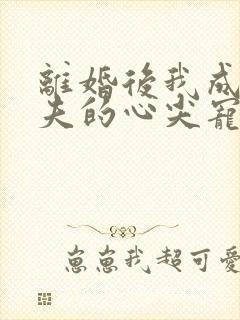 離婚後我成
夫的心尖寵
崽崽我超可愛